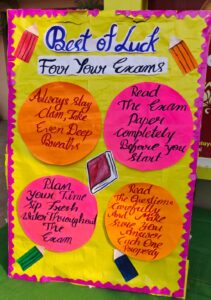 Best of Luck
Four Your Exams
Always stay
Clam, Take
Even Deep
Breaths
Read
The Exam
Paper
Completely
Before you
Start
Plan
your Time
Sip Fresh
Water Throughout
The
Exam
Read
The Questions
Carefully
And Make
Sure You
Answer
Each One
Properly